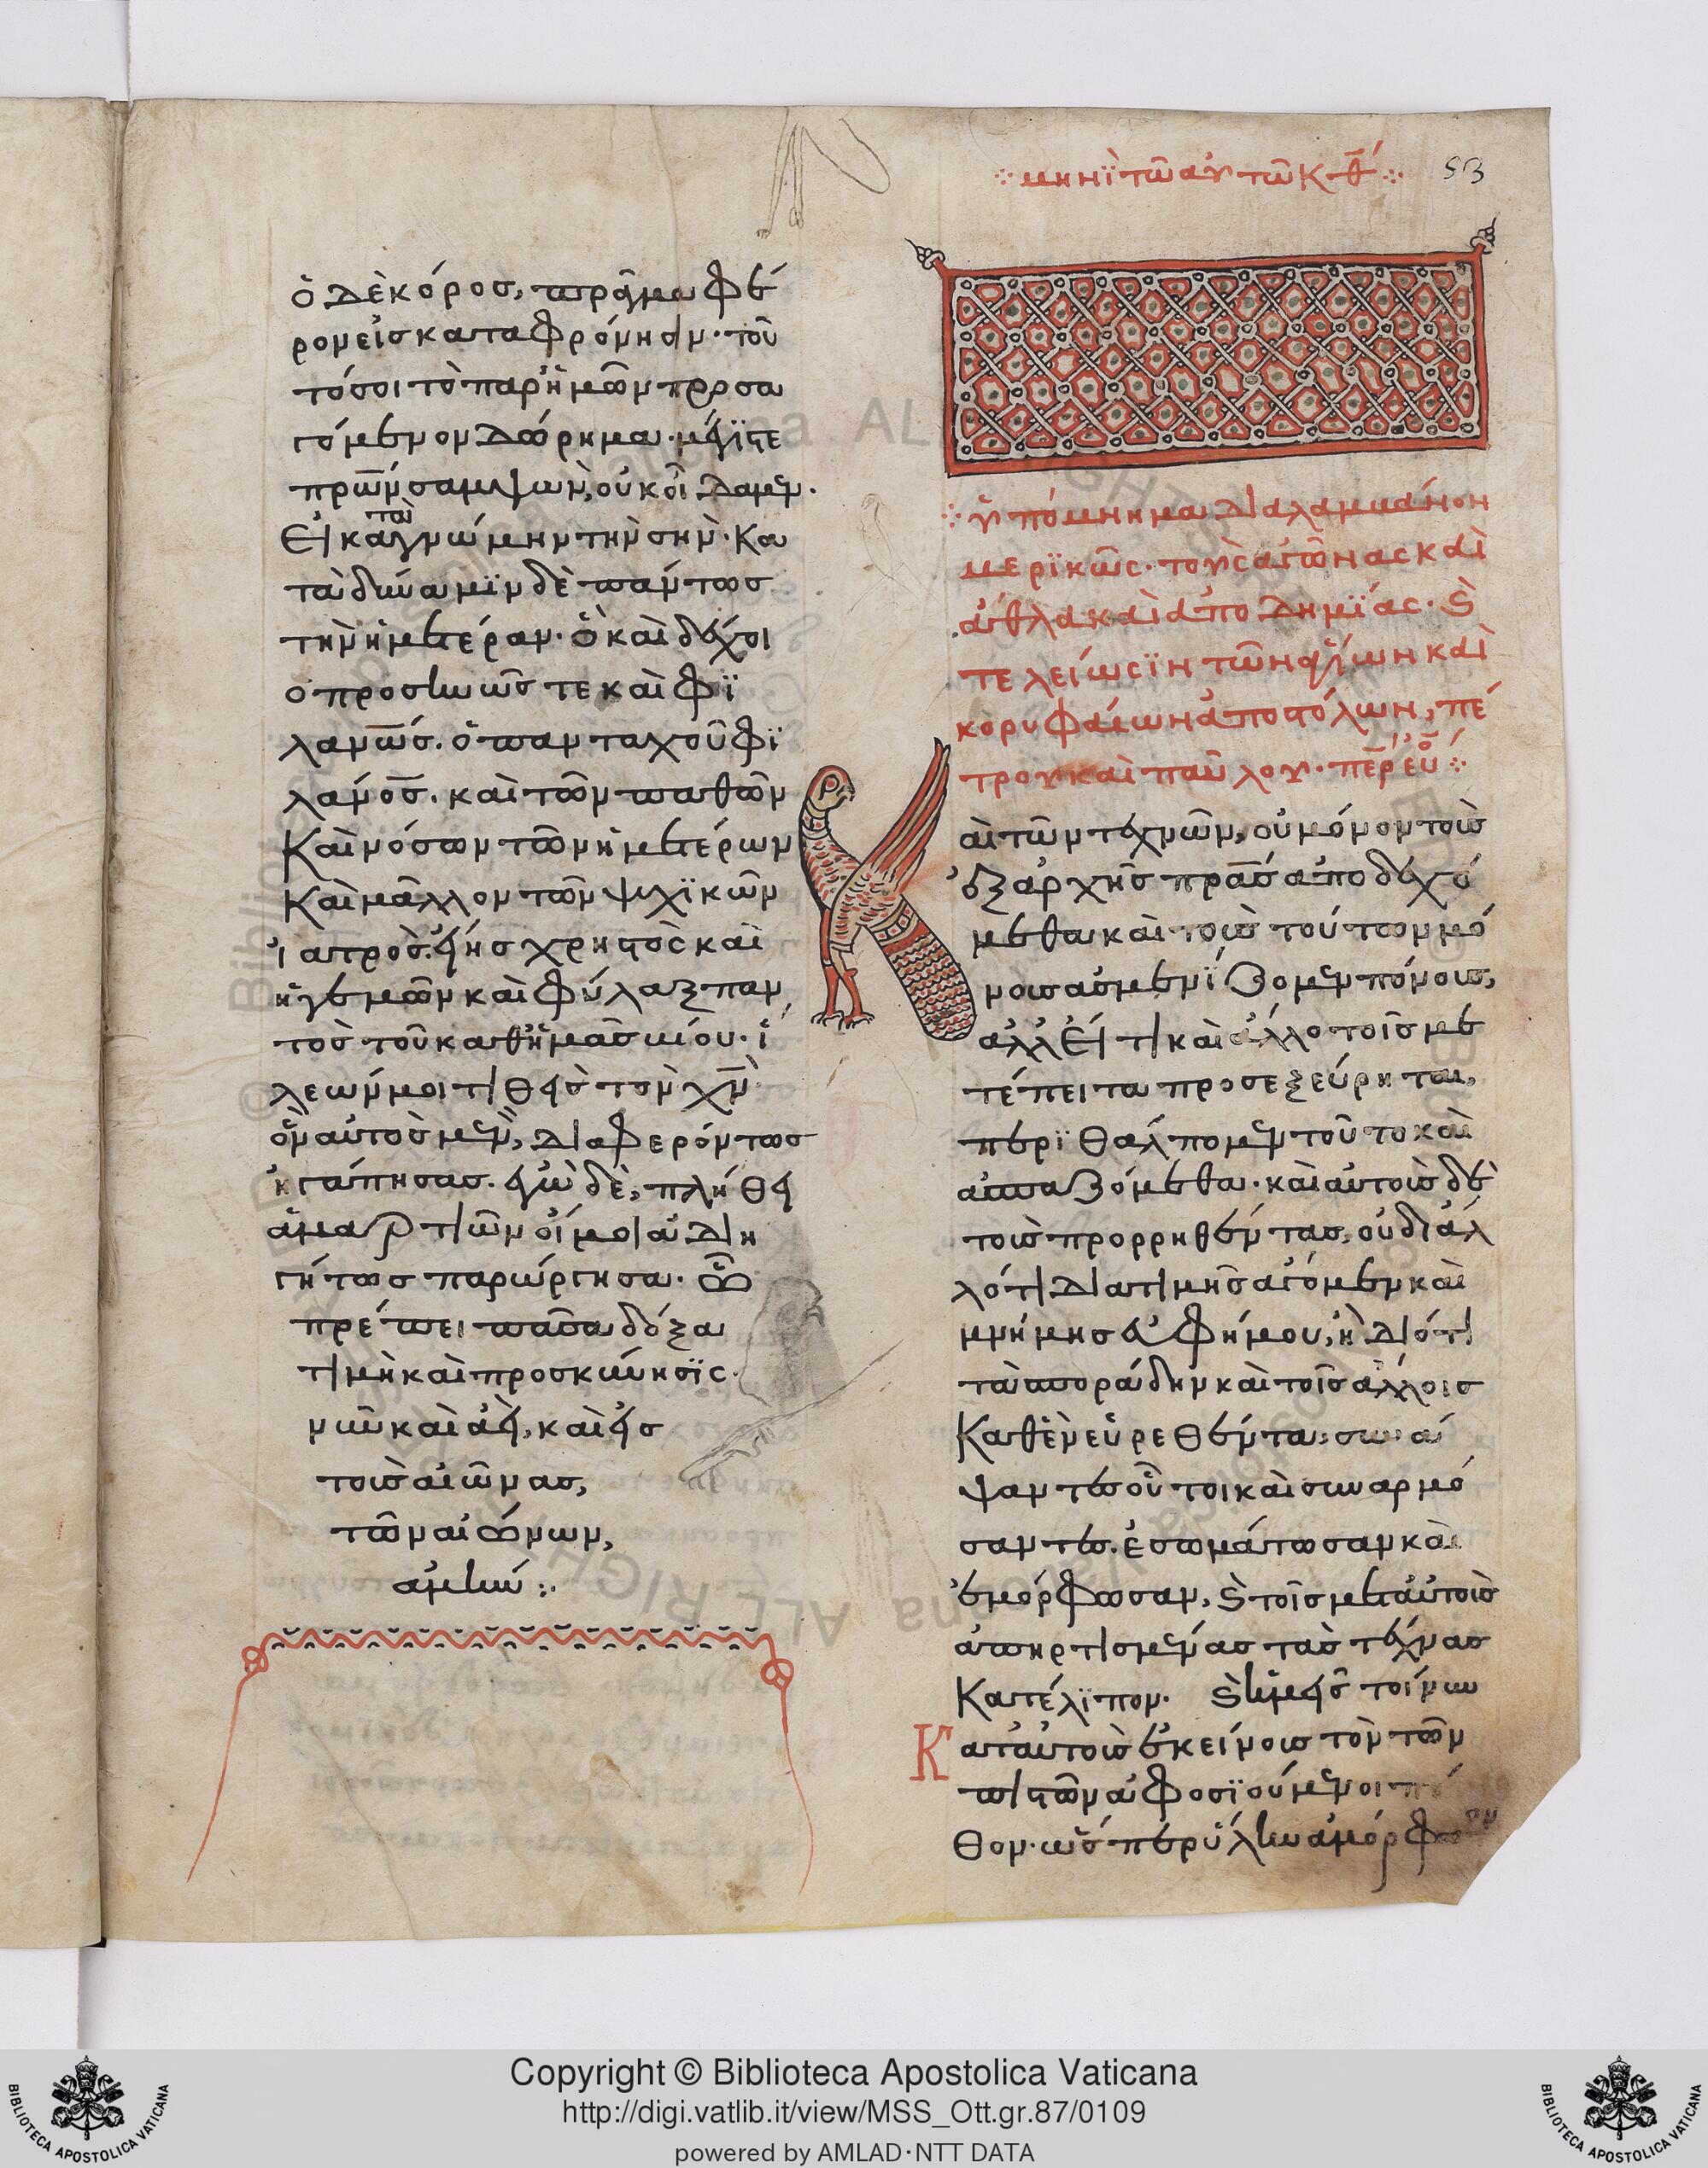 μηνὶ τῶ αὐτῶ κθ
53
ὁ δὲ κόρος, πρᾶγμα φέ
ρον εἰς καταφρόνησιν· τοῦ
τό σοι τὸ παρ' ἡμῶν προσα
γόμενον δώρημα· μέγιστε
πρωΐ
οὐκ οἶδα μὲν·
εἰ κατὰ γνώμην τὴν σὴν· κα
τὰ δύναμϊν δὲ πάντως
τὴν ἡμετέραν· ὃ καὶ δέχοι
ο προσηνῶς τε καὶ φϊ
λανως. ὁ πανταχοῦ φϊ
λάνος. καὶ τῶν παθῶν
καὶ νόσων τῶν ἡμετέρων
καὶ μᾶλλον τῶν ψυχϊκῶν
ἰατρὸς. εἴης χρηστὸς καὶ
ἡγεμὼν καὶ φύλαξ παν
τὸς τοῦ καθ' ἡμᾶς βίου· ἵ
λεών μοι τιθεὶς τὸν χν
ὃν αὐτὸς μὲν, διαφερόντως
ἠγάπησας. ἐγὼ δὲ, πλήθει
ἁμαρτιῶν οἴμοι ἀδιη
γήτως παρώργησα. ὧ
πρέπει πᾶσα δόξα
τιμὴ καὶ προσκύνησϊς·
νῦν καὶ ἀεὶ, καὶ εἰς
τοὺς αἰῶνας,
τῶν αἰώνων,
ἀμήν:·
ὑπόμνημα διαλαμβάνον
μερϊκῶς· τοὺς ἀγῶνας καὶ
ἆθλα καὶ ἀποδημΐας· καὶ
τελείωσϊν τῶν ἁγίων καὶ
κορυφαίων ἀποστόλων, πέ
τρου καὶ παύλου·
Καὶ τῶν τεχνῶν, οὐ μόνον τοὺς
ἐξ αρχῆς πρας ἀποδεχό
μεθα καὶ τοὺς τούτων μό
νους ἀσμενίζομεν πόνους,
ἀλλ' εἴ τι καὶ ἄλλο τοῖς με
τέπειτα προσεξεύρηται,
περϊθάλπομεν τοῦτο καὶ
ἀσπαζόμεθα· καὶ αὐτοὺς δὲ
τοὺς προρρηθέντας, οὐ δι' άλ
λό τι διὰ τιμῆς ἄγομεν καὶ
μνήμης εὐφήμου, ἢ διότι
τὰ σποράδην καὶ τοῖς ἄλλοις
καθ' ἓν εὑρεθέντα, συνά
ψαντες οὗτοι καὶ συναρμό
σαντες. ἐσωμάτωσαν καὶ
ἐμόρφωσαν, καὶ τοῖς μετ' αὐτοὺς
ἀπηρτισμένας τὰς τέχνας
κατέλϊπον. καὶ ἡμεῖς τοίνυν
Κατ' αὐτοὺς ἐκείνους τὸν τῶν
πιστῶν ἀφοσϊούμενοι πό
θον· ὡσπερ ὕλην ἄμορφον
Copyright © Biblioteca Apostolica Vaticana
http://digi.vatlib.it/view/MSS_Ott.gr.87/0109
powered by AMLAD·NTT DATA
BIBLIOTECA APOSTOLICA VATICANA
BIBLIOTECA APOSTOLICA VATICANA